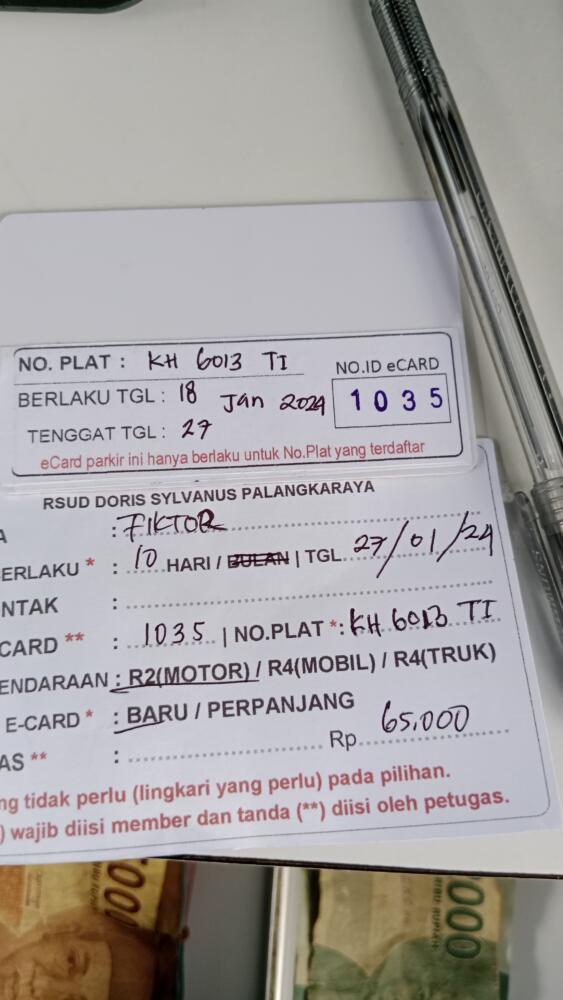 NO. PLAT : KH 6013 TI
NO.ID eCARD
BERLAKU TGL : 18 Jan 2024
1035
TENGGAT TGL : 27
eCard parkir ini hanya berlaku untuk No.Plat yang terdaftar
RSUD DORIS SYLVANUS PALANGKARAYA
A : FIKTOR
ERLAKU * : 10 HARI / BULAN | TGL 27/01/24
NTAK :
CARD ** : 1035 | NO.PLAT *: KH 6013 TI
ENDARAAN : R2(MOTOR) / R4(MOBIL) / R4(TRUK)
E-CARD * : BARU / PERPANJANG
AS ** : Rp 65.000
ng tidak perlu (lingkari yang perlu) pada pilihan.
) wajib diisi member dan tanda (**) diisi oleh petugas.
000
000
RIBU RUPIAH